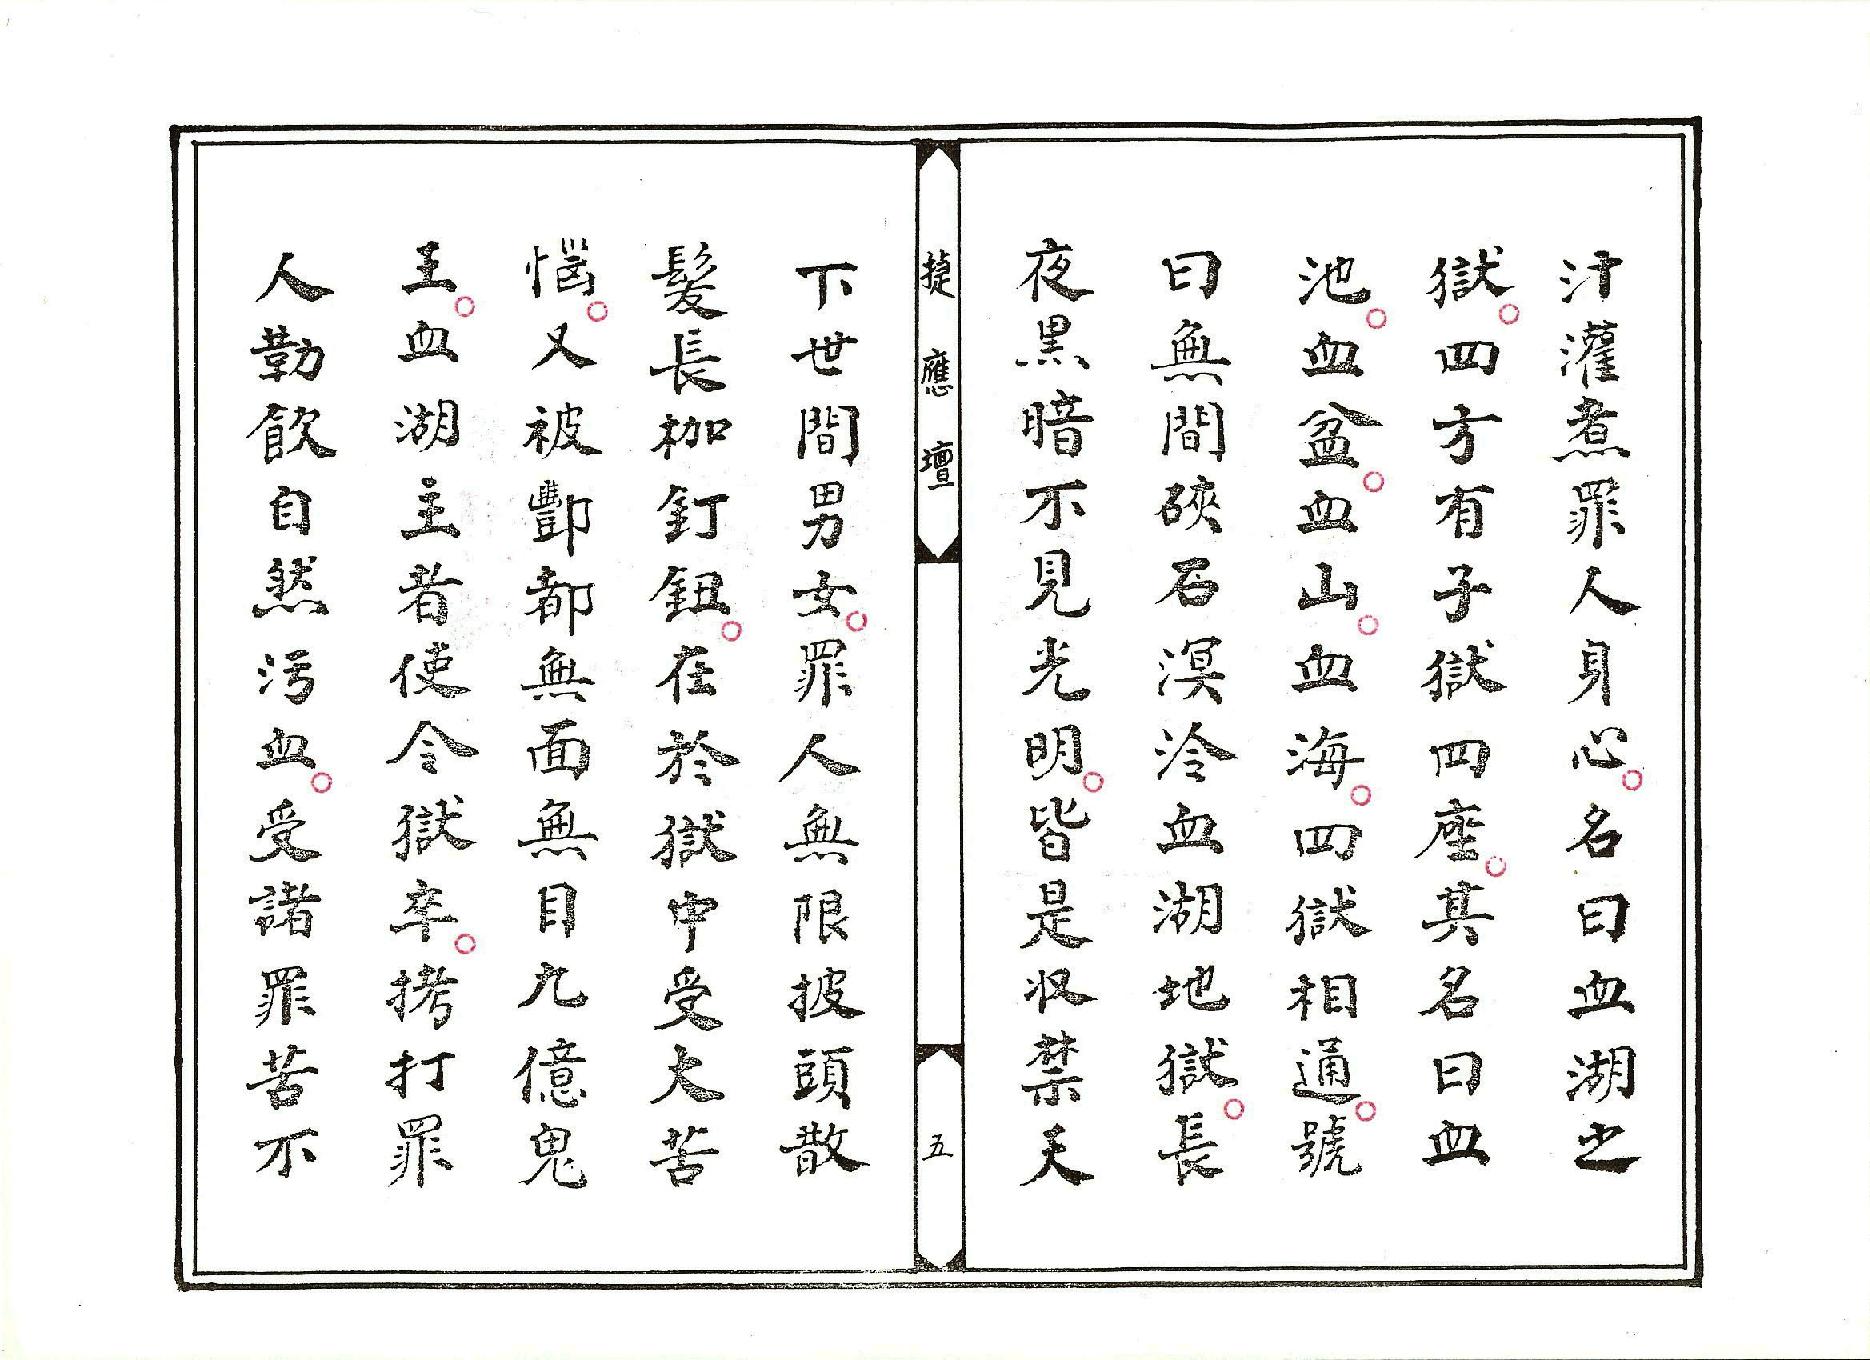 汁灌煮罪人身心。名曰血湖之
獄。四方有子獄四座。其名曰血
池。血盆。血山。血海。四獄相通。號
曰無間硤石溟泠血湖地獄。長
夜黑暗不見光明。皆是收禁天
捷應壇
五
下世間男女。罪人無限披頭散
髮長枷釘鈕。在於獄中受大苦
惱。又被酆都無面無目九億鬼
王。血湖主者使令獄卒。拷打罪
人勒飲自然污血。受諸罪苦不